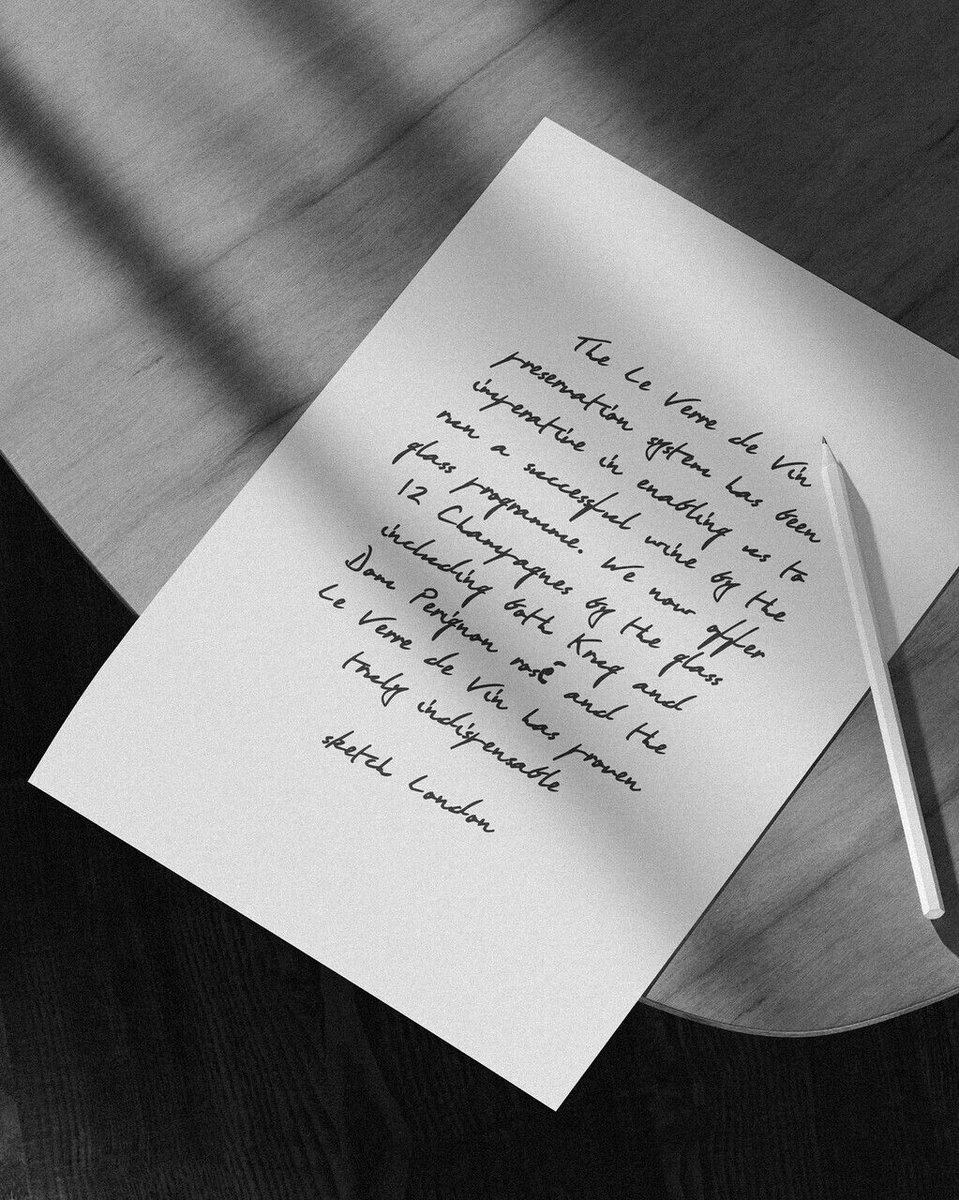 The Le Verre de Vin
preservation system has been
imperative in enabling us to
run a successful wine by the
glass programme. We now offer
12 Champagnes by the glass
including both Krug and
Dom Perignon rosé and the
Le Verre de Vin has proven
truly indispensable
sketch London